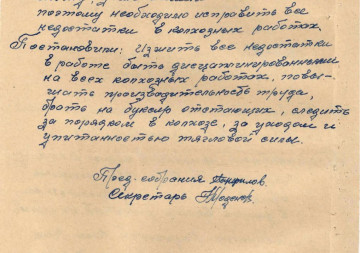 поэтому необходимо исправить все
недостатки в колхозных работах.
Постановили: Изжить все недостатки
в работе быть дисциплинированнеи
на всех колхозных работах, повы-
шать производительность труда,
брать на буксир отстающих, следить
за порядком в колхозе, за уходом и
упитанностью тягловой силы.
Пред. собрания
Секретарь